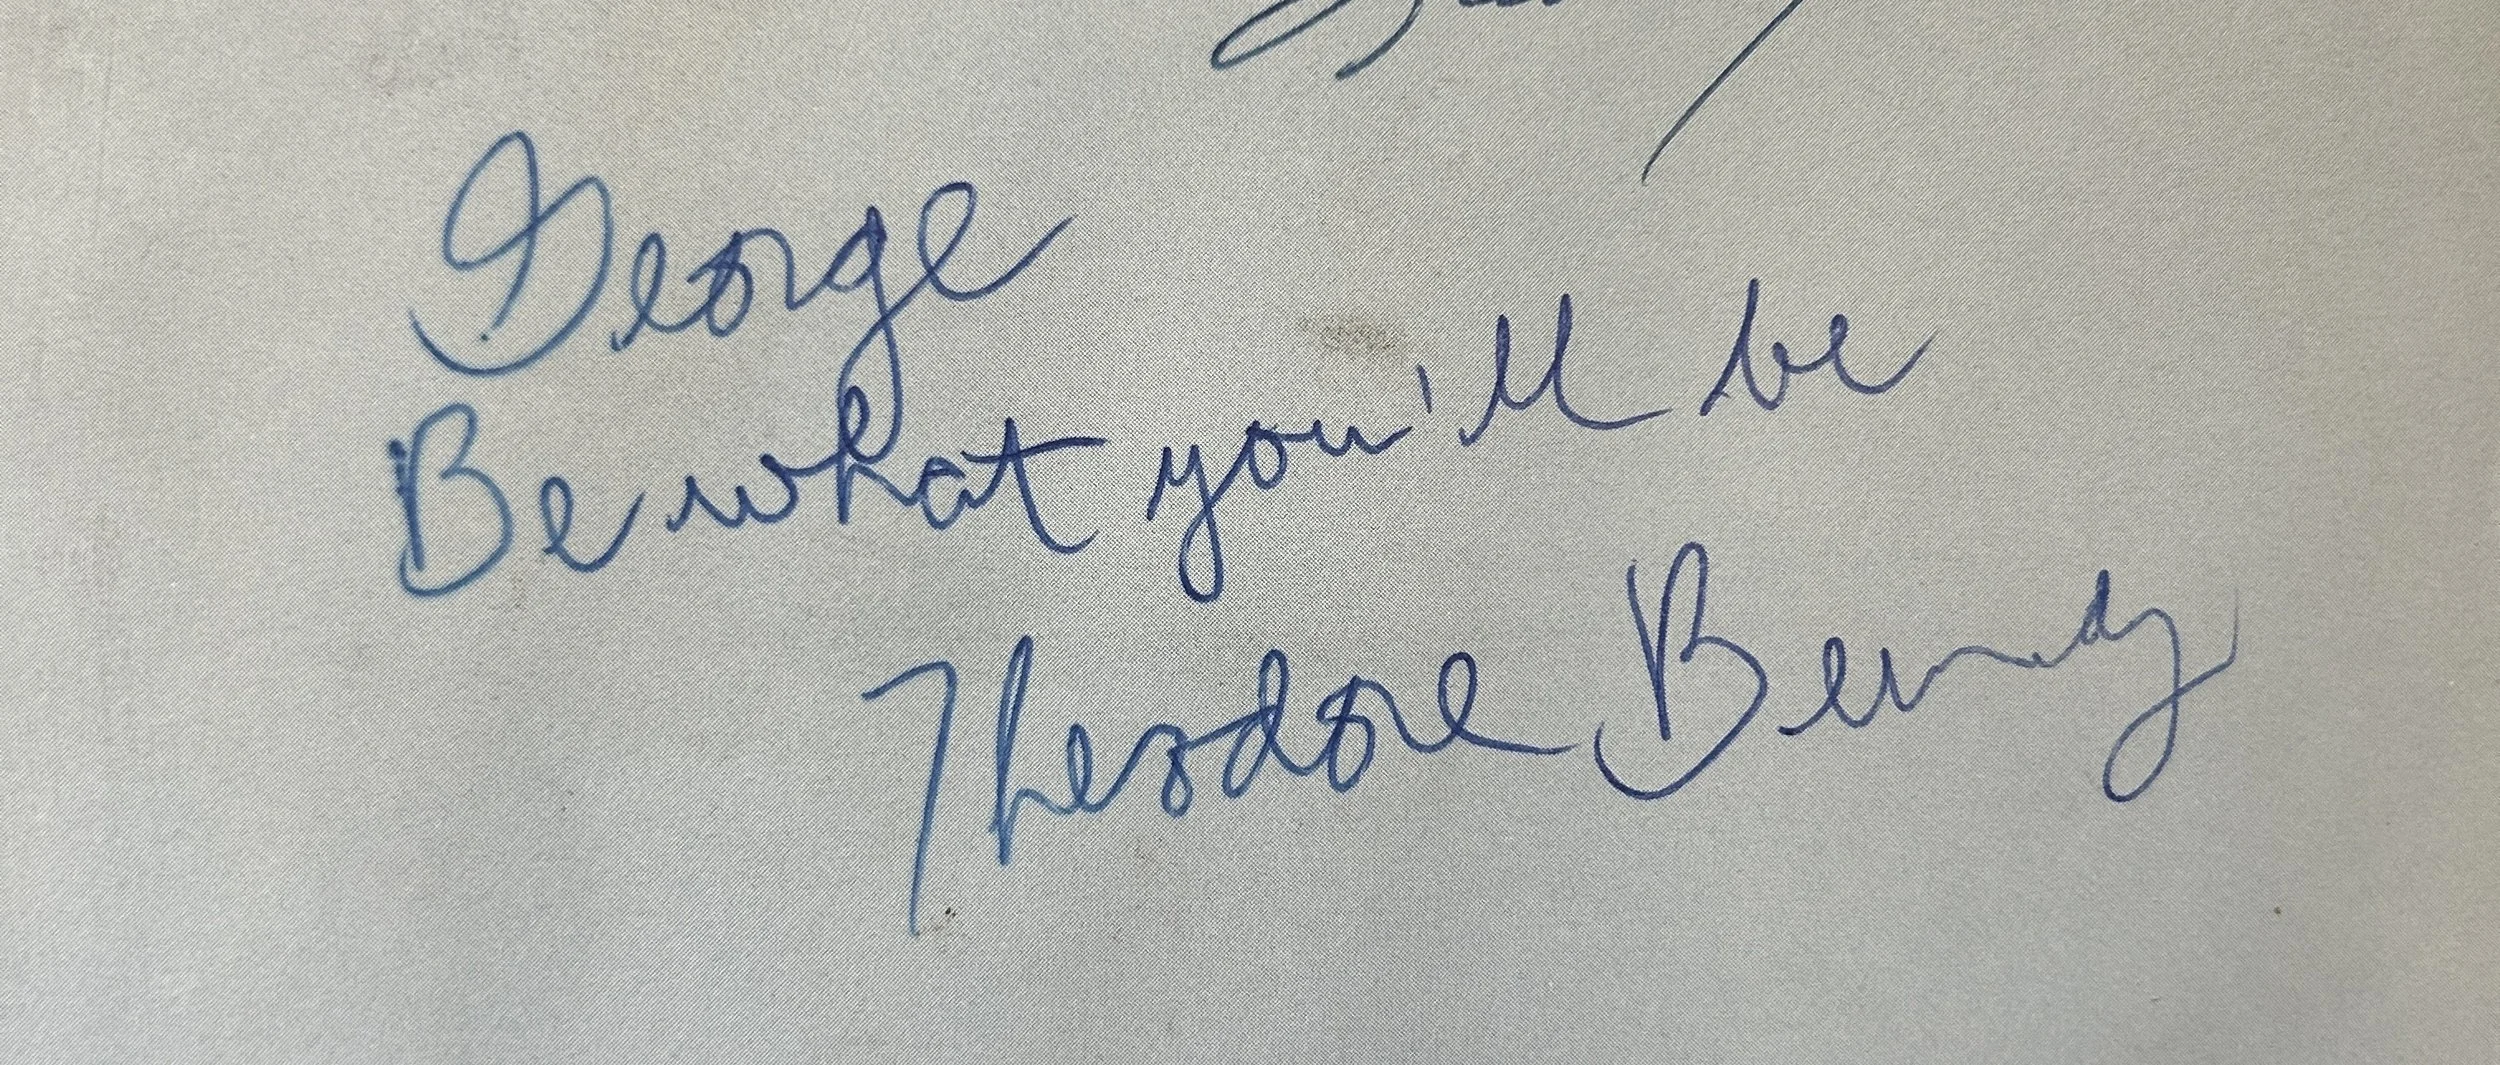 George
Be what you'll be
Theodore Bendy